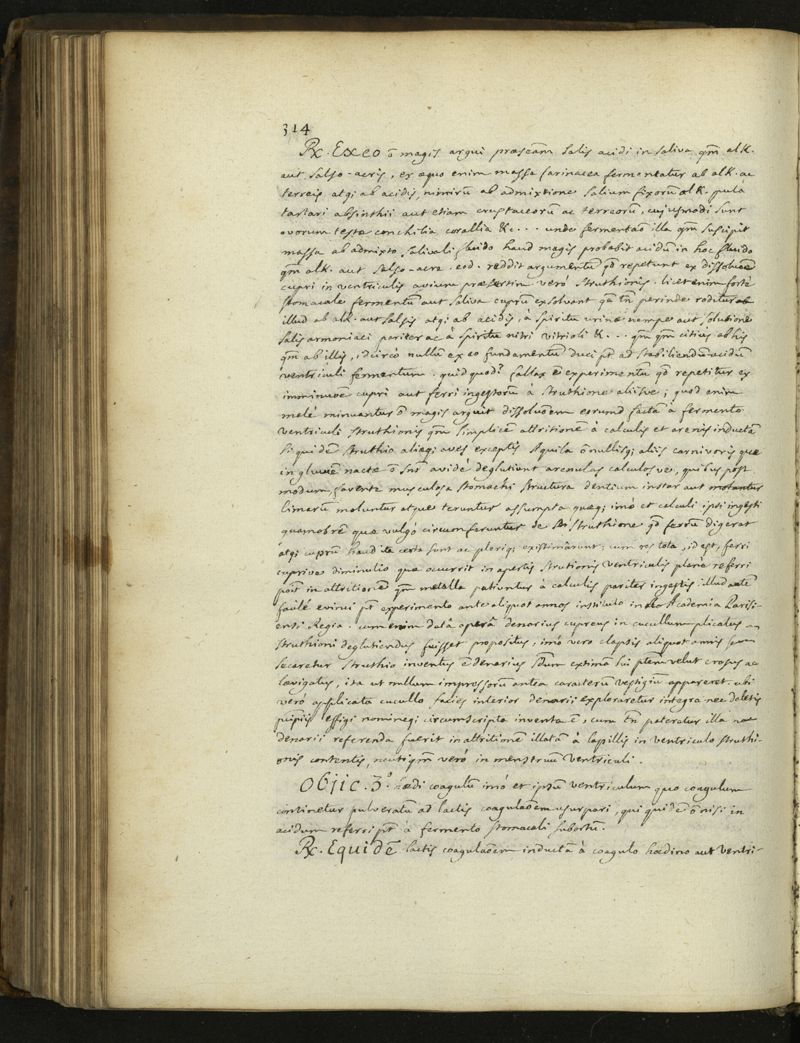 314
Rx. Ex eo õ magis argui præseãm salis acidi in saliva qm̃ alk.
aut salso-acris, ex æquo enim massa farinacea fermentatur ab alk. ac
terreis atq; ab acidis, nimirũ ab admixtione salium fixorũ alk. puta
tartari absinthii aut etiam crustaceorũ ac terreorũ, cujusmodi sunt
ovorum testæ conchilia corallia &c... unde fermentaõ illa qm̃ suscipit
massa ab admixto salivali fluido haud magis probabit acidũ in hoc fluido
qm̃ alk. aut salso-acre. eod. reddit argumentũ qd repetunt ex dissoluõe
cupri in ventriculis avium præsertim verò struthionis. licet enim fortè
stomacale fermentũ aut saliva cuprũ exsolvant qã tñ perinde roditur
illud ab alk. aut salsis atq; ab acidis, à spiritu urinæ nempe aut solutione
salis armoniaci pariter ac à spiritu nitri vitrioli &... qm̃ qm̃ citius ab his
qm̃ ab illis, idcircò nullũ ex eo fundamentũ duci pt ad stabiliendũ acidũ
ventriculi fermentum. quid quod? fallax ẽ experimentũ qd repetitur ex
imminuõe cupri aut ferri ingestorũ à struthione aliisve; quod enim
mole minuantur õ magis arguit dissoluõem eorund factã à fermento
ventriculi struthionis qm̃ simplicẽ attritionẽ à calculis et arenis inductã
si quidẽ struthio aliæq; aves exceptis Aquila õnullisq; aliis carnivoris quæ
ingluviẽ nactæ õ snt avidè deglutiunt arenulas calculosve, quibus post
modum, favente musculosa stomachi structura dentium instar aut
limarũ moluntur atque teruntur assumpta quæq; imò et calculi ipsi ingesti
quamobrẽ quæ vulgò circumferuntur de struthione qd ferrũ digerat
atq; cuprũ haud ita certa sunt ac pleriq; existimârunt; cum res tota, id est, ferri
cuprive diminutio quæ occurrit in apertis strutionis ventriculis planè referri
possit in attritionẽ qm̃ metalla patiuntur à calculis pariter ingestis illud autẽ
facilè evinci pt experimento ante aliquot annos instituto in Academia Parisi-
ensi Regia. cum enim datâ operâ denarius cupreus in cucullum plicatus
struthioni deglutiendus fuisset propositus, imò vero elapsis aliquot annis
secaretur struthio inventus ẽ denarius sdum extimã sui ptem velut erosus ac
lævigatus, ita ut nullum impressorũ antea caracterũ vestigiũ appareret ubi
verò applicata cucullo facies interior denarii exploraretur integra nec deletis
principis effigi nominiq; circumscripta inventa ẽ, cum tñ pateratur illa
denarii referenda fuerit in attritionẽ illatã à lapillis in ventriculo struthi-
onis contentis, neutiqm̃ verò in menstruum ventriculi.
Objic. 3º. hædi coagulũ imò et ipsũ ventriculum quo coagulum
continetur pulveratũ ad lactis coagulaõem usurpari, qui quidẽ õ nisi in
acidum referri pt à fermento stomacali subortũ.
Rx. Equidẽ lactis coagulaõem inductã à coagulo hædino aut ventri-